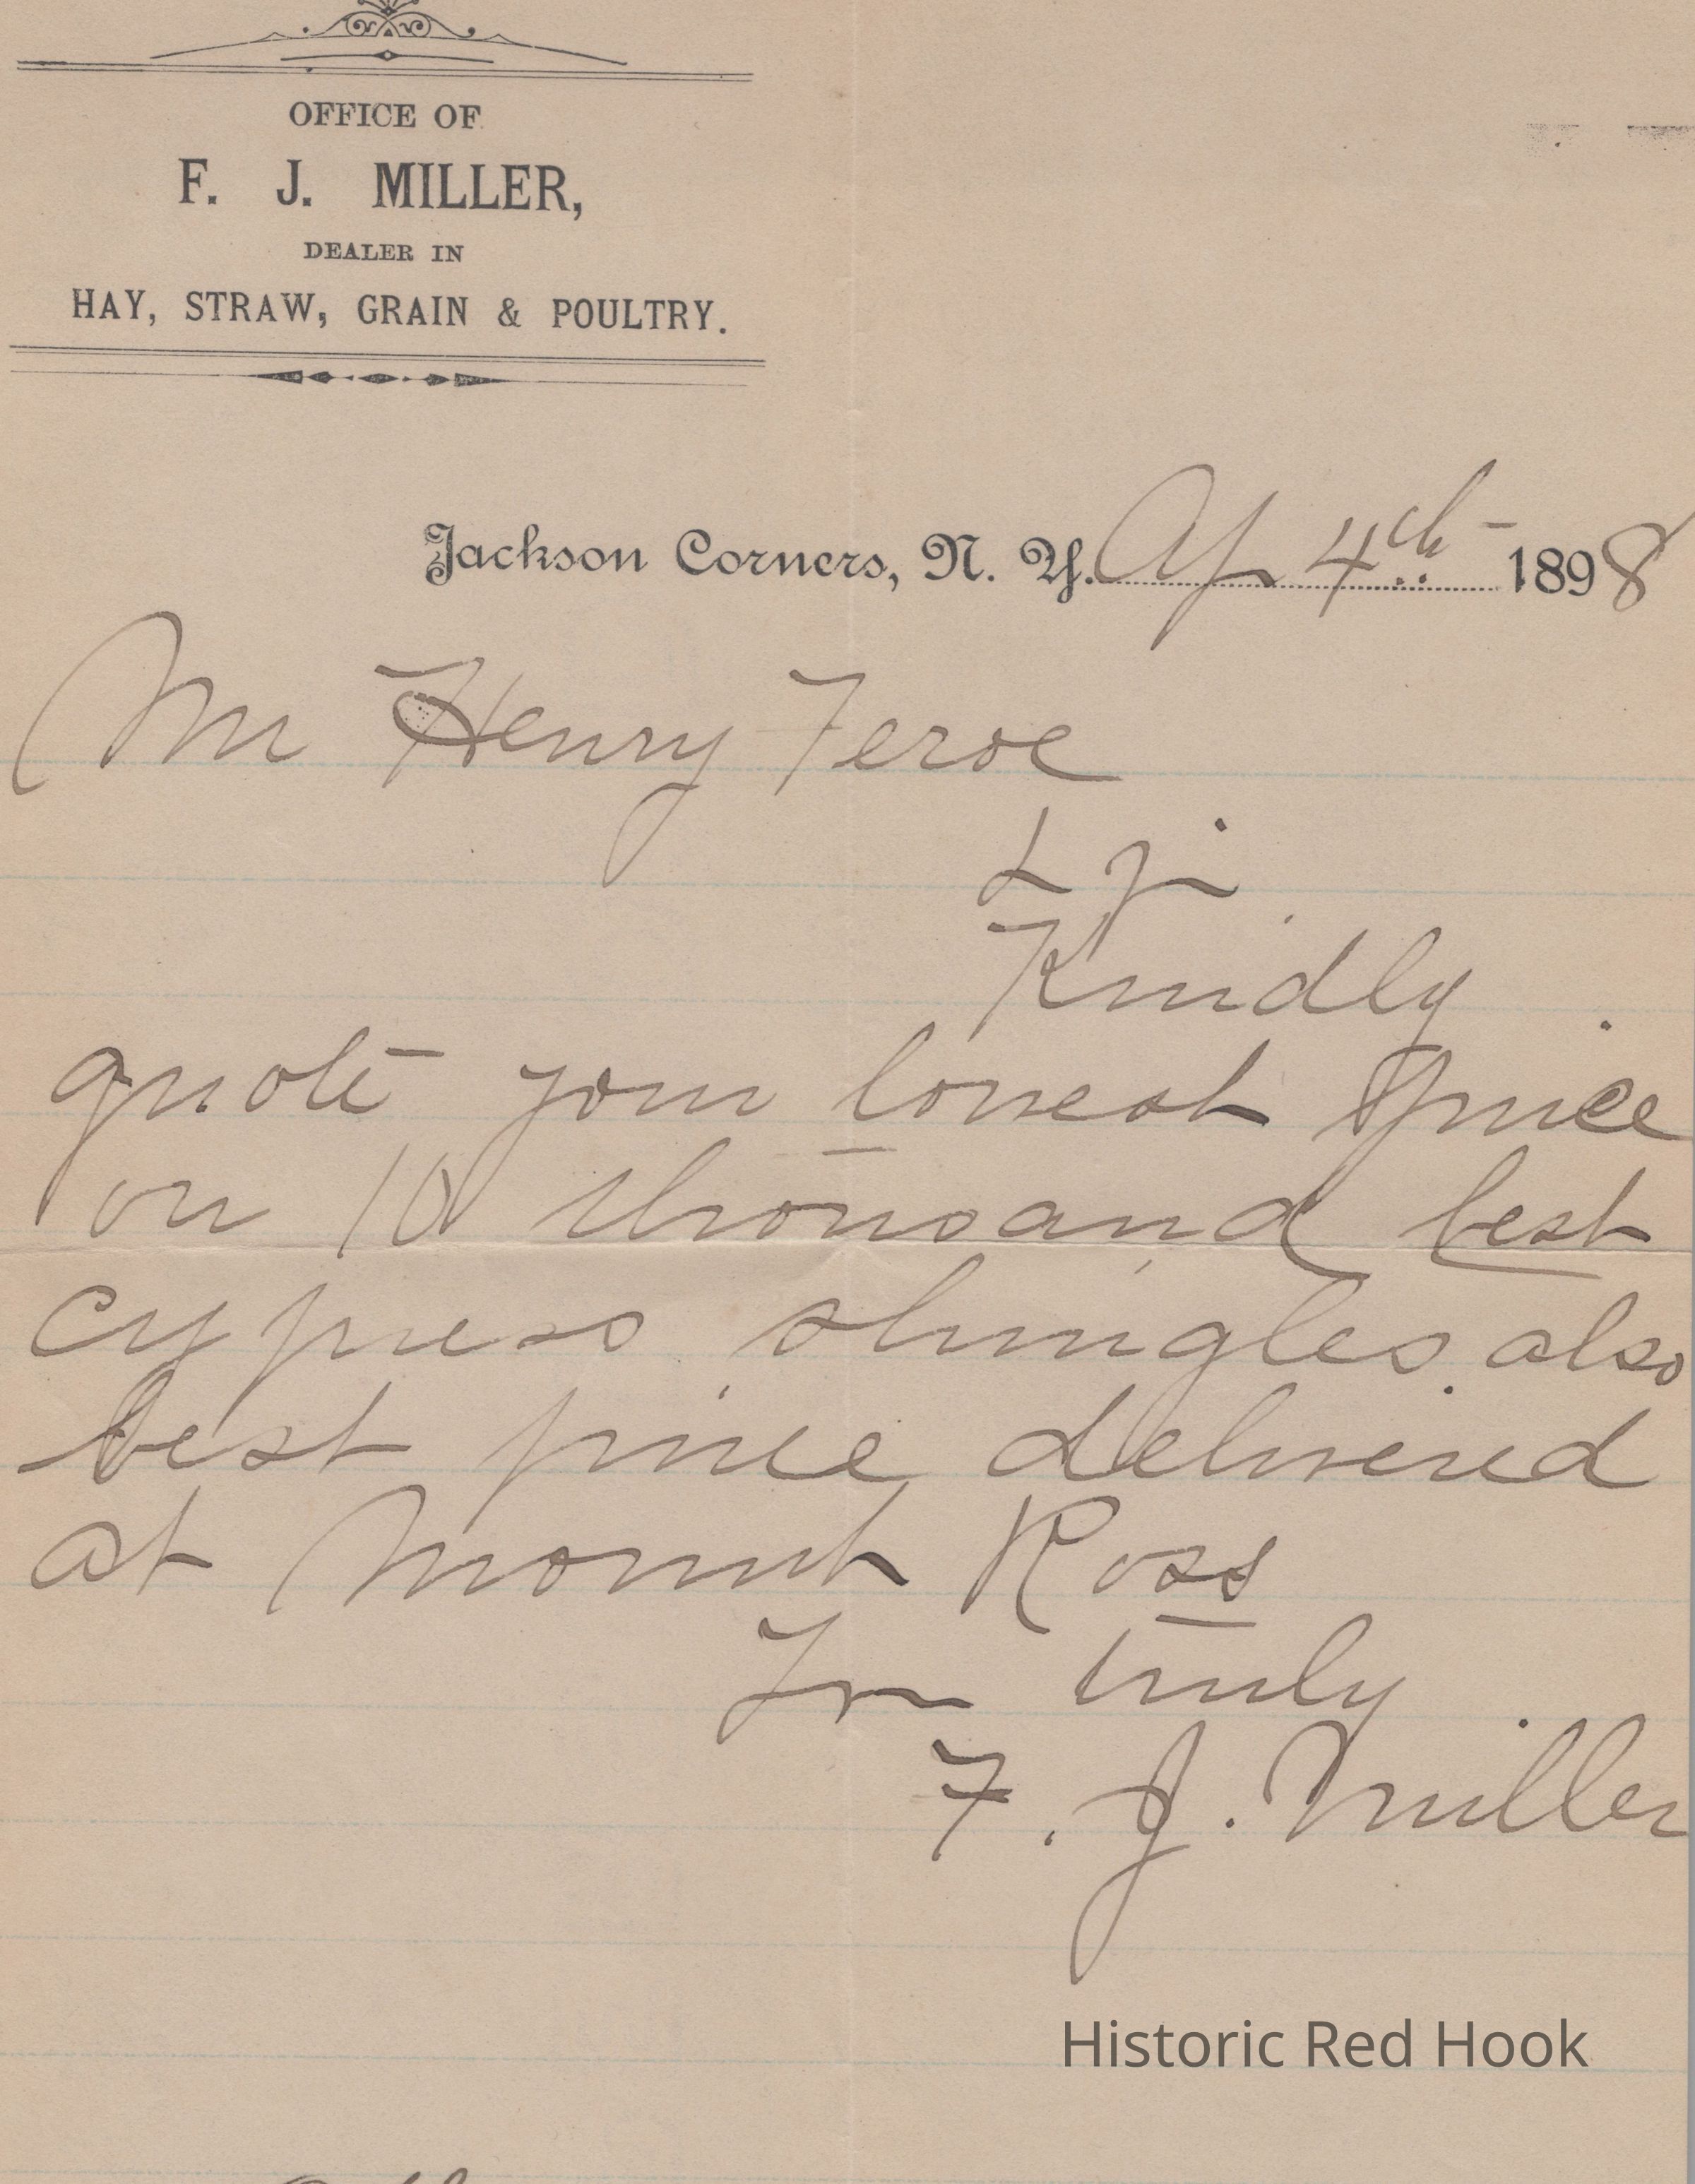 OFFICE OF
F. J. MILLER,
DEALER IN
HAY, STRAW, GRAIN & POULTRY.
Jackson Corners, N. Y. Ap 4th 1898
Mr Henry Feroe
Kindly
quote your lowest price
on 10 thousand best
cypress shingles also
best price delivered
at Mount Ross
truly
F. J. Miller
Historic Red Hook